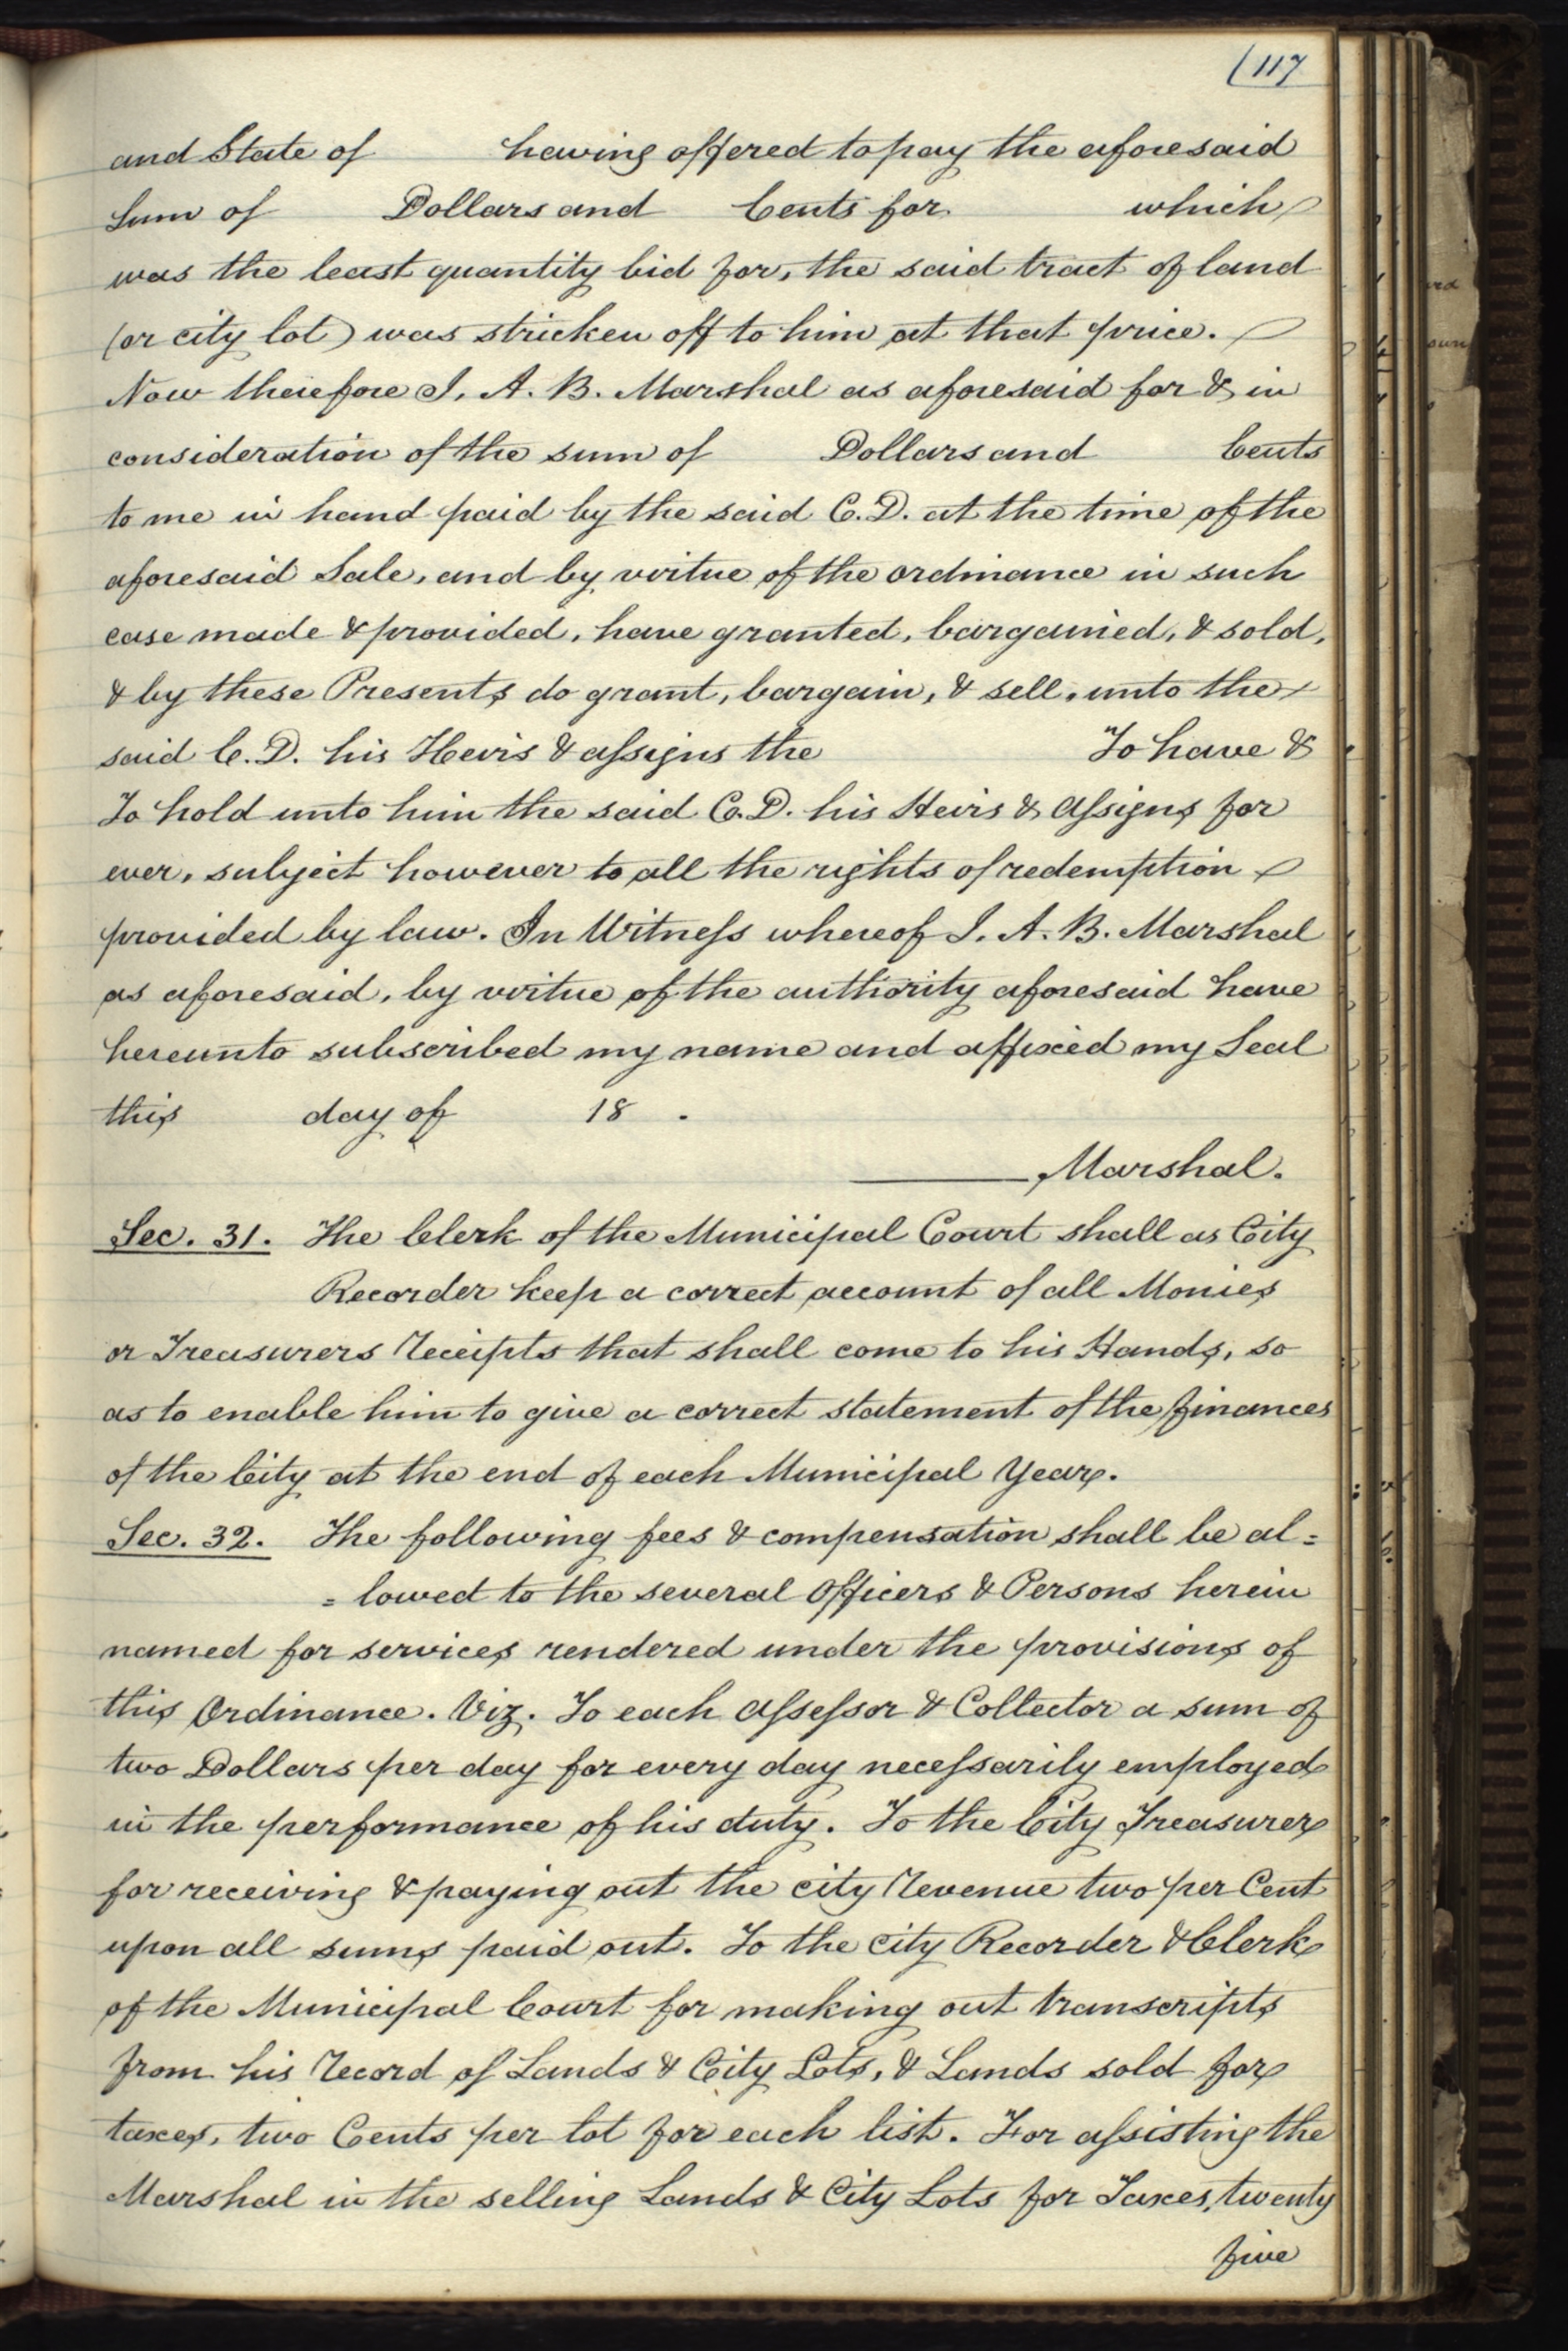 (117
and State of having offered to pay the aforesaid
Sum of Dollars and Cents for which
was the least quantity bid for, the said tract of land
(or city lot) was stricken off to him at that price.
Now therefore I, A. B. Marshal as aforesaid for & in
consideration of the sum of Dollars and Cents
to me in hand paid by the said C. D. at the time of the
aforesaid Sale, and by virtue of the ordinance in such
case made & provided, have granted, bargained, & sold,
& by these Presents do grant, bargain, & sell, unto the
said C. D. his Heirs & assigns the To have &
To hold unto him the said C. D. his Heirs & Assigns for
ever, subject however to all the rights of redemption
provided by law. In Witness whereof I. A. B. Marshal
as aforesaid, by virtue of the authority aforesaid have
hereunto subscribed my name and affixed my Seal
this day of 18 .
Marshal.
Sec. 31. The Clerk of the Municipal Court shall as City
Recorder keep a correct account of all Monies
or Treasurers Receipts that shall come to his Hands, so
as to enable him to give a correct statement of the finances
of the City at the end of each Municipal Year.
Sec. 32. The following fees & compensation shall be al=
=lowed to the several Officers & Persons herein
named for services rendered under the provisions of
this Ordinance. Viz. To each Assessor & Collector a sum of
two Dollars per day for every day necessarily employed
in the performance of his duty. To the City Treasurer
for receiving & paying out the city Revenue two per Cent
upon all sums paid out. To the City Recorder & Clerk
of the Municipal Court for making out transcripts
from his Record of Lands & City Lots, & Lands sold for
taxes, two Cents per lot for each list. For assisting the
Marshal in the selling Lands & City Lots for Taxes, twenty
five